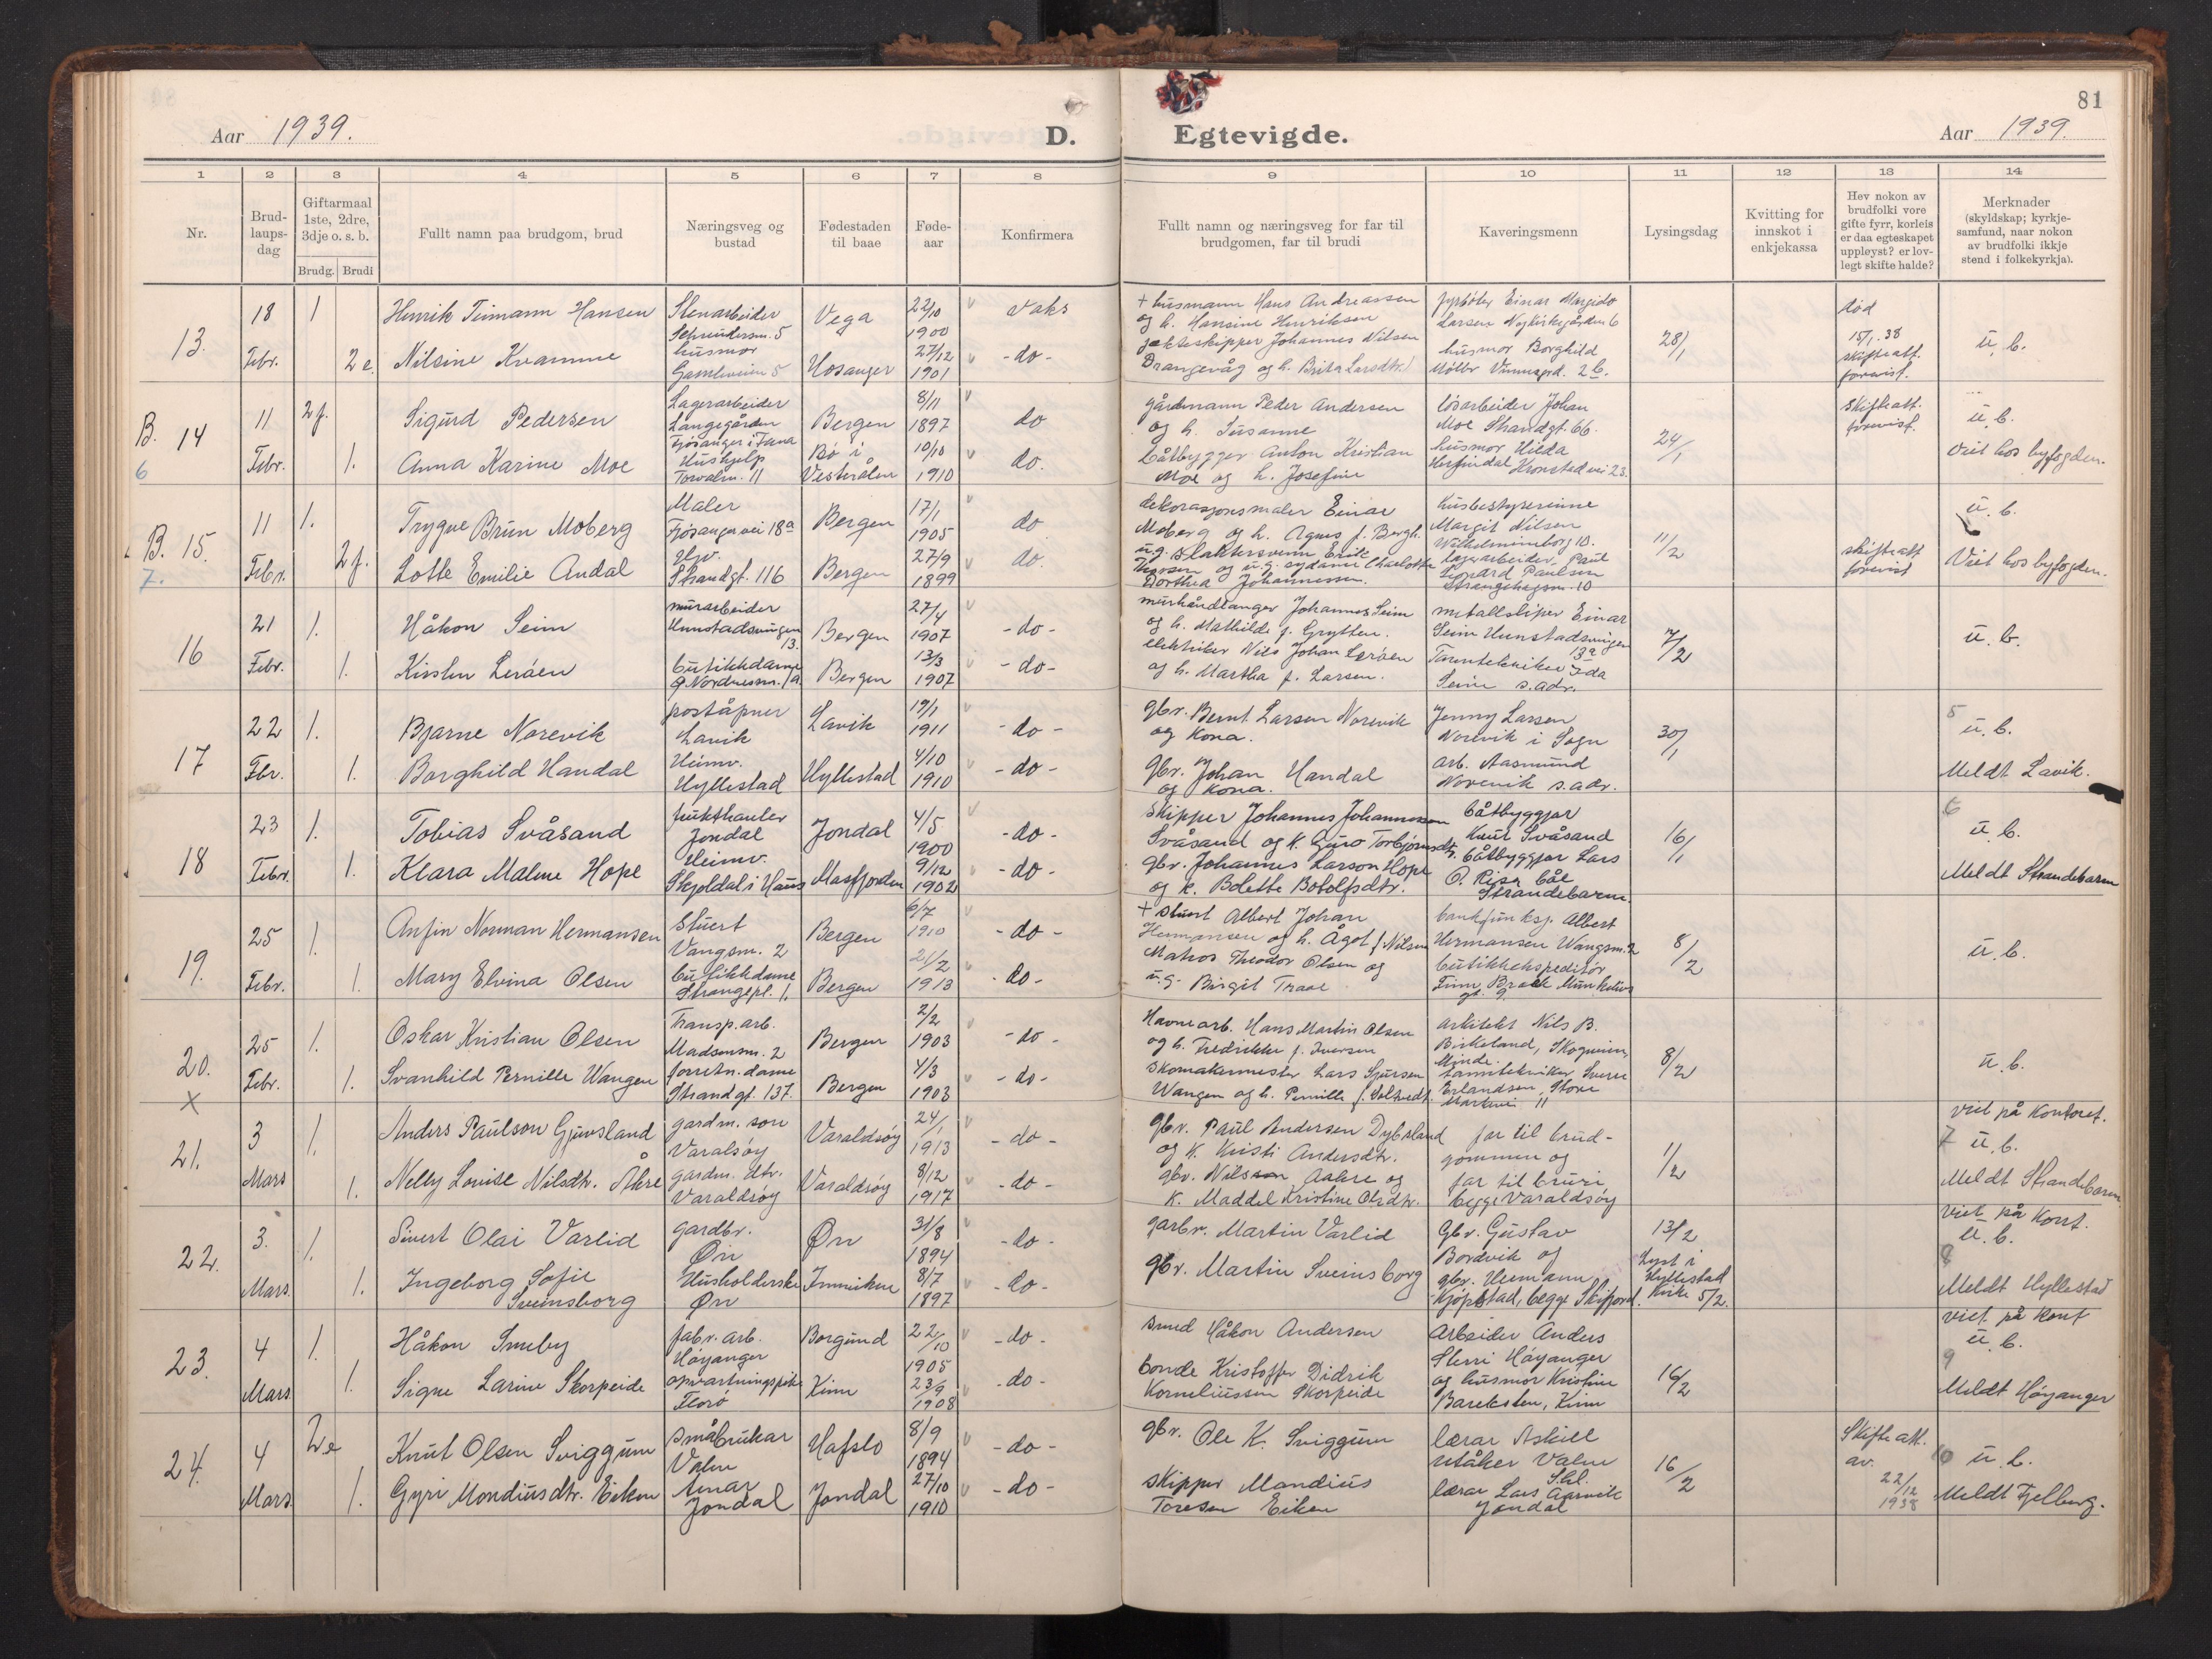 81
Aar 1939. D. Egtevigde. Aar 1939.
1 2 3 4 5 6 7 8 9 10 11 12 13 14
Nr.
Brud-
laups-
dag
Giftarmaal
1ste, 2dre,
3dje o. s. b.
Brudg. Brudi
Fullt namn paa brudgom, brud
Næringsveg og
bustad
Fødestaden
til baae
Føde-
aar
Konfirmera
Fullt namn og næringsveg for far til
brudgomen, far til brudi
Kaveringsmenn
Lysingsdag
Kvitting for
innskot i
enkjekassa
Hev nokon av
brudfolki vore
gifte fyrr, korleis
er daa egteskapet
uppleyst? er lov-
legt skifte halde?
Merknader
(skyldskap; kyrkje-
samfund, naar nokon
av brudfolki ikkje
stend i folkekyrkja).
13.
18
Febr.
1
2 e.
Henrik Teimann Hansen
Nilsine Kvamme
Stenarbeider
husmor
Vega
Hosanger
22/10
1900
27/12
1901
vaks
- do -
+ husmann Hans Andreassen
og h. Hansine Henriksen
jekteskipper Johannes Nilsen
Drangevåg og h. Brita Larsdtr.
fyrbøter Einar Margido
Larsen Nykirkegården 6
husmor Borghild
28/1
død
15/1.38
skifteatt.
forevist.
u. b.
B. 14
6
11
Febr.
2 f.
1.
Sigurd Pedersen
Anna Karine Moe
Lagerarbeider
Langegården
Fjøsanger i Fana
Hushjelp
Torvalm. 11
Bergen
Bø i
Vesterålen
8/11
1897
10/10
1910
do
do.
gårdmann Peder Andersen
og h. Susanne
båtbygger Anton Kristian
Moe og h. Josefine
løsarbeider Johan
Moe Strandgt. 66.
husmor Hilda
Herfindal Kronstadvei 23.
24/1
skifteatt.
forevist.
u. b.
Viet hos byfogden.
B. 15.
7.
11
Febr.
1.
2 f.
Trygve Brun Moberg
Lotte Emilie Andal
Maler
Fjøsangervei 18a
Strandgt. 116
Bergen
Bergen
17/1
1905
27/9
1899
do
do.
dekorasjonsmaler Einar
Moberg og h. Agnes f. Bergh.
u.g. slaktersvenn Erik
og u.g. sydame Charlotte
Dorthea Johannessen.
husbestyrerinne
Margit Nilsen
Wilhelmineborg 10.
lagerarbeider Paul
Leonard Paulsen
Strangehagen 10
11/2
skifteatt
forevist
u. b.
Viet hos byfogden.
16
21
Febr.
1.
1.
Håkon Seim
Kirsten Lerøen
murarbeider
Hunstadsvingen
13.
butikkdame
Bergen
Bergen
27/4
1907
13/3
1907
- do -
- do -
murhåndlanger Johannes Seim
og h. Mathilde f. Grytten.
elektriker Nils Johan Lerøen
og h. Martha f. Larsen.
metallsliper Einar
Seim Hunstadsvingen
13a
Tanntekniker Ida
Seim s. adr.
7/2
u. b.
17
22
Fbr.
1.
1.
Bjarne Norevik
Borghild Handal
poståpner
Lavik
Heimv.
Hyllestad
Lavik
Hyllestad
19/1
1911
4/10
1910
- do -
- do -
gbr. Bernt Larsen Norevik
og Kona.
gbr. Johan Handal
og Kona.
Jenny Larsen
Norevik i Sogn
arb. Aasmund
Norevik s. adr.
30/1
5
u. b.
Meldt Lavik.
18
23
Febr.
1.
1.
Tobias Svåsand
Klara Malene Hope
frukthandler
Jondal
Heimv.
Skjoldal i Haus
Jondal
Masfjorden
4/5
1900
9/12
1902
- do -
- do -
Skipper Johannes Johannessen
Svåsand og K. Guro Torbjørnsdtr.
gbr. Johannes Larson Hope
og k. Bolette Botolfsdtr.
båtbyggjar
Knut Svåsand
båtbyggjar Lars
O. Risa båe
Strandebarm.
16/1
6
u. b.
Meldt Strandebarm
19.
25
Febr.
1.
1.
Anfin Norman Hermansen
Mary Elvina Olsen
Stuert
Vangsm. 2
butikkdame
Strangepl. 1.
Bergen
Bergen
6/7
1910
21/2
1913
- do -
- do -
+ Stuert Albert Johan
Hermansen og h. Ågot f. Nilsen
Matros Theodor Olsen og
u.g. Birgit Traae
bankfunksj. Albert
Hermansen Wangsm. 2
butikkekspeditør
8/2
u. b.
20.
X
25
Febr.
1.
1.
Oskar Kristian Olsen
Svanhild Pernille Wangen
Transp. arb.
Madsensm. 2
forretn. dame
Strandgt. 137.
Bergen
Bergen
2/2
1903
4/3
1903
- do -
- do -
Havnearb. Hans Martin Olsen
og h. Fredrikke f. Iversen
Skomakermester Lars Sjursen
Wangen og h. Pernille f. Soltvedt.
arkitekt Nils B.
Birkeland, Skogveien,
Minde.
tanntekniker Sverre
Erlandsen, Store
Markvei 11
8/2
u. b.
21.
3
Mars
1.
1.
Anders Paulson Gjuvsland
Nelly Lovise Nilsdtr. Åkre
gardm. son
Varalsøy
gardm. dtr.
Varaldsøy
Varaldsøy
Varaldsøy
24/1
1913
8/12
1917
- do -
- do -
gbr. Paul Andersen Dybsland
og K. Kristi Andersdtr.
gbr. Nilsson Aakre og
K. Maddel Kristine Olsdtr.
far til brud-
gommen og
far til bruri,
begge Varaldsøy
1/2
viet på Kontoret.
7 u. b.
Meldt Strandebarm
22.
3.
Mars.
1.
1.
Sivert Olai Varlid
Ingeborg Sofie
Sveinsborg
gardbr.
Øn
Husholderske
Øn
Øn
31/8
1894
8/7
1897
- do -
- do -
garbr. Martin Varlid
gbr. Martin Sveinsborg
Gbr. Gustav
Bordvik og
gbr. Hermann
Kjøpstad, begge Skifjord.
13/2
Lyst i
Hyllestad
Kirke 5/2.
viet på Kont.
u. b.
8
Meldt Hyllestad
23.
4
Mars
1.
1.
Håkon Smeby
Signe Larine Skorpeide
fabr. arb.
Høyanger
opvartningspike
Florø
Borgund
Kinn
22/10
1905
23/9
1908
- do -
- do -
Smed Håkon Andersen
bonde Kristoffer Didrik
Korneliussen Skorpeide
Arbeider Anders
Sterri Høyanger
og husmor Kristine
Bareksten, Kinn
16/2
viet på Kont
u. b.
9
Meldt Høyanger
24.
4
Mars.
2 e
1.
Knut Olsen Sviggum
Gyri Mondiusdtr. Eiken
småbrukar
Valen
Jondal
Hafslo
Jondal
8/9
1894
27/10
1910
- do -
- do -
gbr. Ole K. Sviggum
Skipper Mandius
Toresen Eiken
lærar Askill
Utåker Valen
lærar Lars Aarvik
Jondal
16/2
Skifteatt.
av.
22/12
1938
10 u. b.
Meldt Fjelberg.